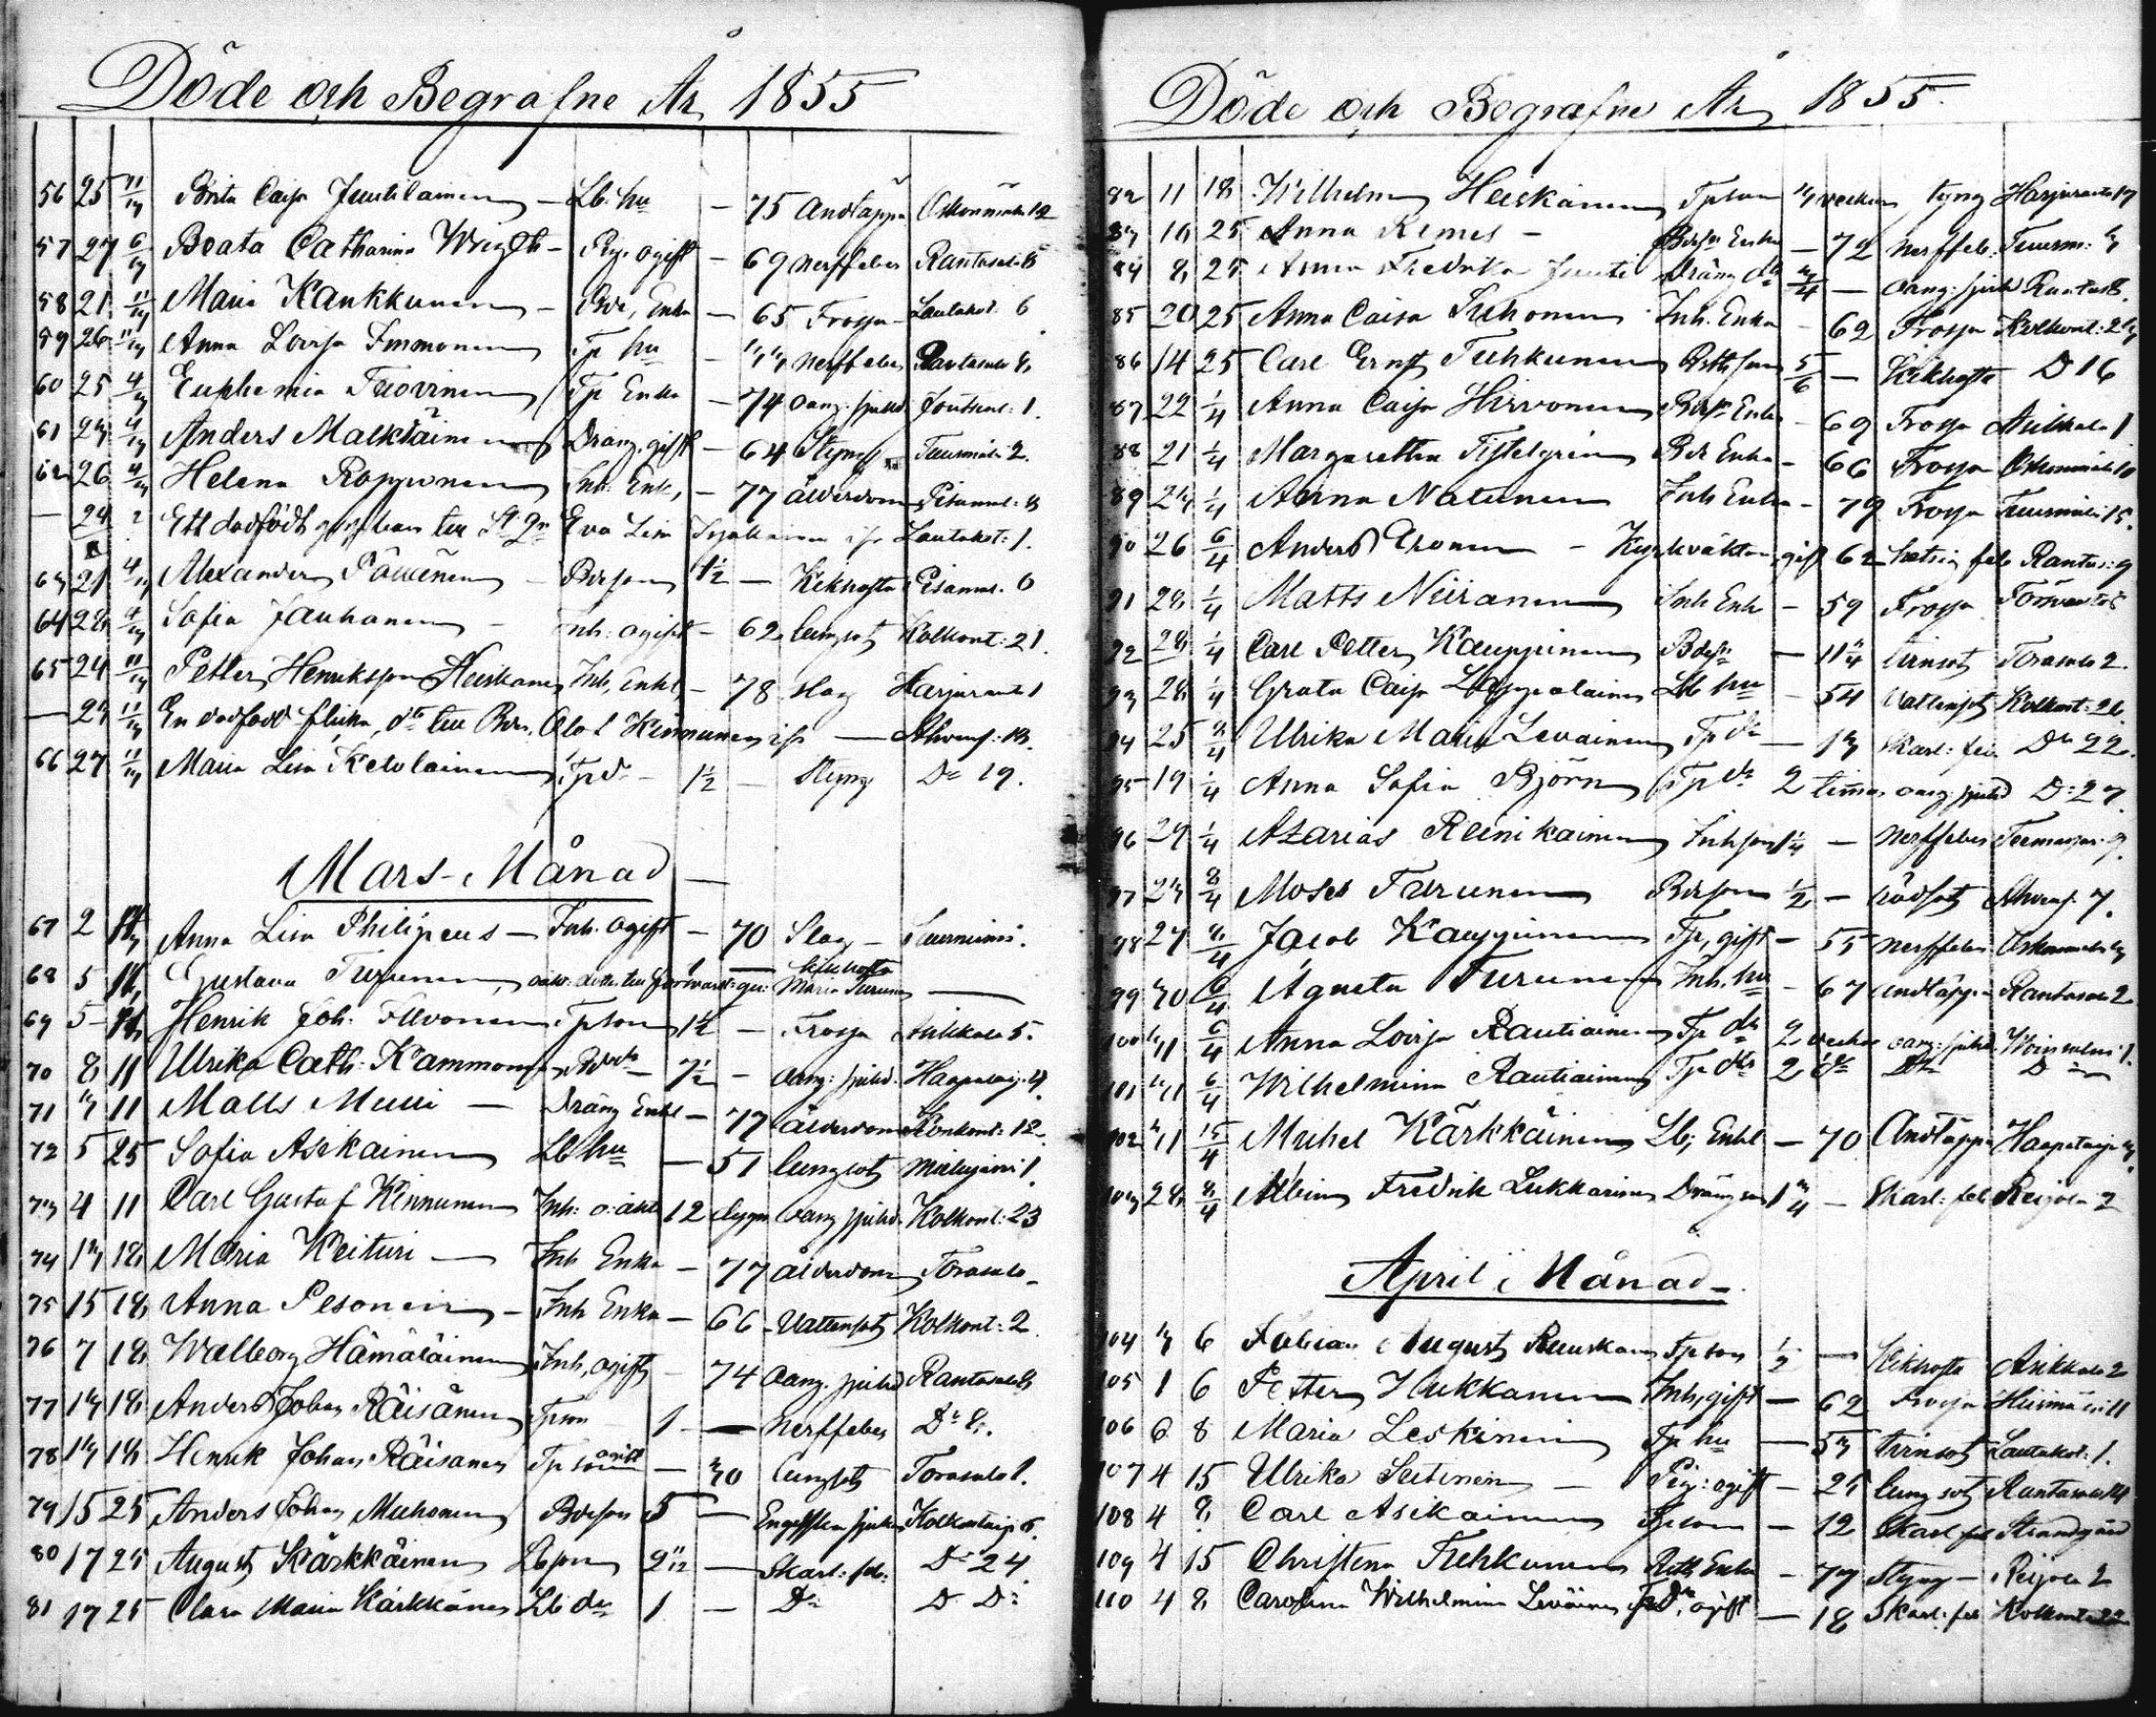 Döde och Begrafne År 1855
56 25 11/3 Brita Caisa Juutilainen - Lb. hu - 75 Andtäppa
57 27 6/3 Beata Catharina Wright - Pig. ogift - 69 nerffeber Rantasal: 8
58 21 11/3 Maria Kaukkunen - Bdr, Enka - 65 Frossa - Lautakot. 6
59 26 11/3 Anna Lovisa Immonen Tp hu - 33 nerffeber Rantasal 8
60 25 4/3 Euphemia Turvinen Tp Enka - 74 oang. sjukd. Joutsenl: 1.
61 23 4/3 Anders Malkiäinen Dräng. gift - 64 Styng Tuusmäki 2.
62 26 4/3 Helena Ropponen Inh. Enk, - 77 ålderdom
- 24 ? Ett dödfödt gossbarn till Eva Lisa Lautakot: 1.
63 21 4/3 Alexander Pöllänen - Bdrson 1 1/2 - Kikhosta
64 28 4/3 Sofia Jauhanen - Inh: ogift - 62 lungsot Kolkont: 21.
65 24 11/3 Petter Henriksson Heiskanen Inh, Enkl - 78 Slag Harjurant 1
- 23 11/3 En dödfödd flicka, dr till Bdr. Olof Kinnunen - Ahvens: 13.
66 27 11/3 Maria Lisa Ketolainen Tp dr - 1 1/2 - Styng Do 19.
Mars Månad
67 2 Anna Lisa Philipeus - Inh. ogift - 70 Slag -
68 5 Gustava Turunen, 1 - Kikhosta Maria Turunen -
69 5 Henrik Joh. Ilvonen Tpson 1 1/2 - Frossa Aukkala 5.
70 8 11 Ulrika Cath: Kammonen Bdr dr - 7 1/2 - oang: sjukd. Haapataip. 4.
71 3 11 Matts Muui - Dräng Enkl - 77 ålderdom Konkont: 12.
72 5 25 Sofia Asikainen Lb hu - 51 lungsot
73 4 11 Carl Gustaf Kinnunen Inh: o: äkt 12 dygn oang sjukd. Kolkont: 23
74 13 18 Maria Keituri - Inh Enka - 77 ålderdom Torasalo -
75 15 18 Anna Pesonen - Inh Enka - 66 Vattensot Kolkont: 2
76 7 18 Walborg Hämäläinen Inh, ogift - 74 oang. sjukd Rantasal 8
77 13 18 Anders Johan Räisänen Tpson 1 - nerffeber Do 8.
78 13 18 Henrik Johan Räisänen Tpson ogift - 30 lungsot Torasalo 1.
79 15 25 Anders Johan Muhonen Bdrson 5 - Engelska sjukan Kolkontaip 6.
80 17 25 August Kärkkäinen Lbson 2 11/12 - Skarl: feb: Do 24
81 17 25 Clara Maria Kärkkäinen Lb dr 1 - Do D Do
Döde och Begrafne År 1855.
82 11 18 Wilhelm Heiskanen Tpson 3 veckor Styng Harjuranta 17
83 10 25 Anna Remes - Bdrs Enka - 72 nerffeb. Tuusm: 3
84 8 25 Anna Fredrika Juuti Dräng dr 3/4 - oang: sjukd Rantas 8.
85 20 25 Anna Caisa Suhonen Inh. Enka - 62 Frossa Kolkont: 23
86 14 25 Carl Ernst Tuhkunen Rothson 5/6 - Kikhosta D 16
87 22 1/4 Anna Caisa Hirvonen Bdr. Enka - 69 Frossa Aukkala 1
88 21 1/4 Margaretha Tistelgren Bdr Enka - 66 Frossa
89 23 1/4 Anna Natunen Inh Enka - 79 Frossa Tuusmäki 15.
90 26 6/4 Anders Eronen - Kyrkväktar, gift 62 hetsig feb Rantas: 9
91 28 1/4 Matts Niiranen Inh Enkl - 59 Frossa
92 28 1/4 Carl Petter Kauppinen Bdrsn - 11 3/4 tvinsot Torasalo 2.
93 28 1/4 Greta Caisa Lappalainen Lb hu - 54 Vattensot Kolkont: 26
94 25 9/4 Ulrika Maria Levainen Tp dr - 13 Skarl: feb. Do 22.
95 19 1/4 Anna Sofia Björn Tp dr 2 timmar oang: sjukd D: 27.
96 29 1/4 Azarias Reinikainen Inhson 1 1/4 - nerffeber Teemasaar. 9.
97 23 8/4 Moses Turunen Bdrson 1/2 - rödsot Ahvens. 7.
98 27 8/4 Jacob Kauppinen Tp, gift - 55 nerffeber
99 30 6/4 Agneta Turunen Inh. hu - 67 andtäppa Rantasalo 2
100 31 6/4 Anna Lovisa Rautiainen Tp dr 2 veckor oang: sjukd. Woinsalmi 1.
101 31 6/4 Wilhelmina Rautiainen Tp dr 2 do Do D
102 31 15/4 Mickel Kärkkäinen Lb, Enkl - 70 Andtäppa Haapataip 3.
103 28 8/4 Albin Fredrik Lukkarinen Dräng son 1 3/4 - Skarl: feb Reijola 2
April Månad -
104 3 6 Fabian August Ruuskanen Tpson 1/2 - Kikhosta Aukkala 2
105 1 6 Petter Hukkanen Inh, gift - 62 Frossa
106 6 8 Maria Leskinen Tp hu - 53 tvinsot Lautakot. 1.
107 4 15 Ulrika Sutinen - Pig: ogift - 25 lungsot Rantasalo 14
108 4 8 Carl Asikainen Tpson - 12 Skarl feb Strandgård
109 4 15 Christina Tuhkunen Roth Enka - 77 Styng - Reijola 2
110 4 8 Carolina Wilhelmina Leväinen Tp dr, ogift - 18 Skarl: feb Kolkont 22